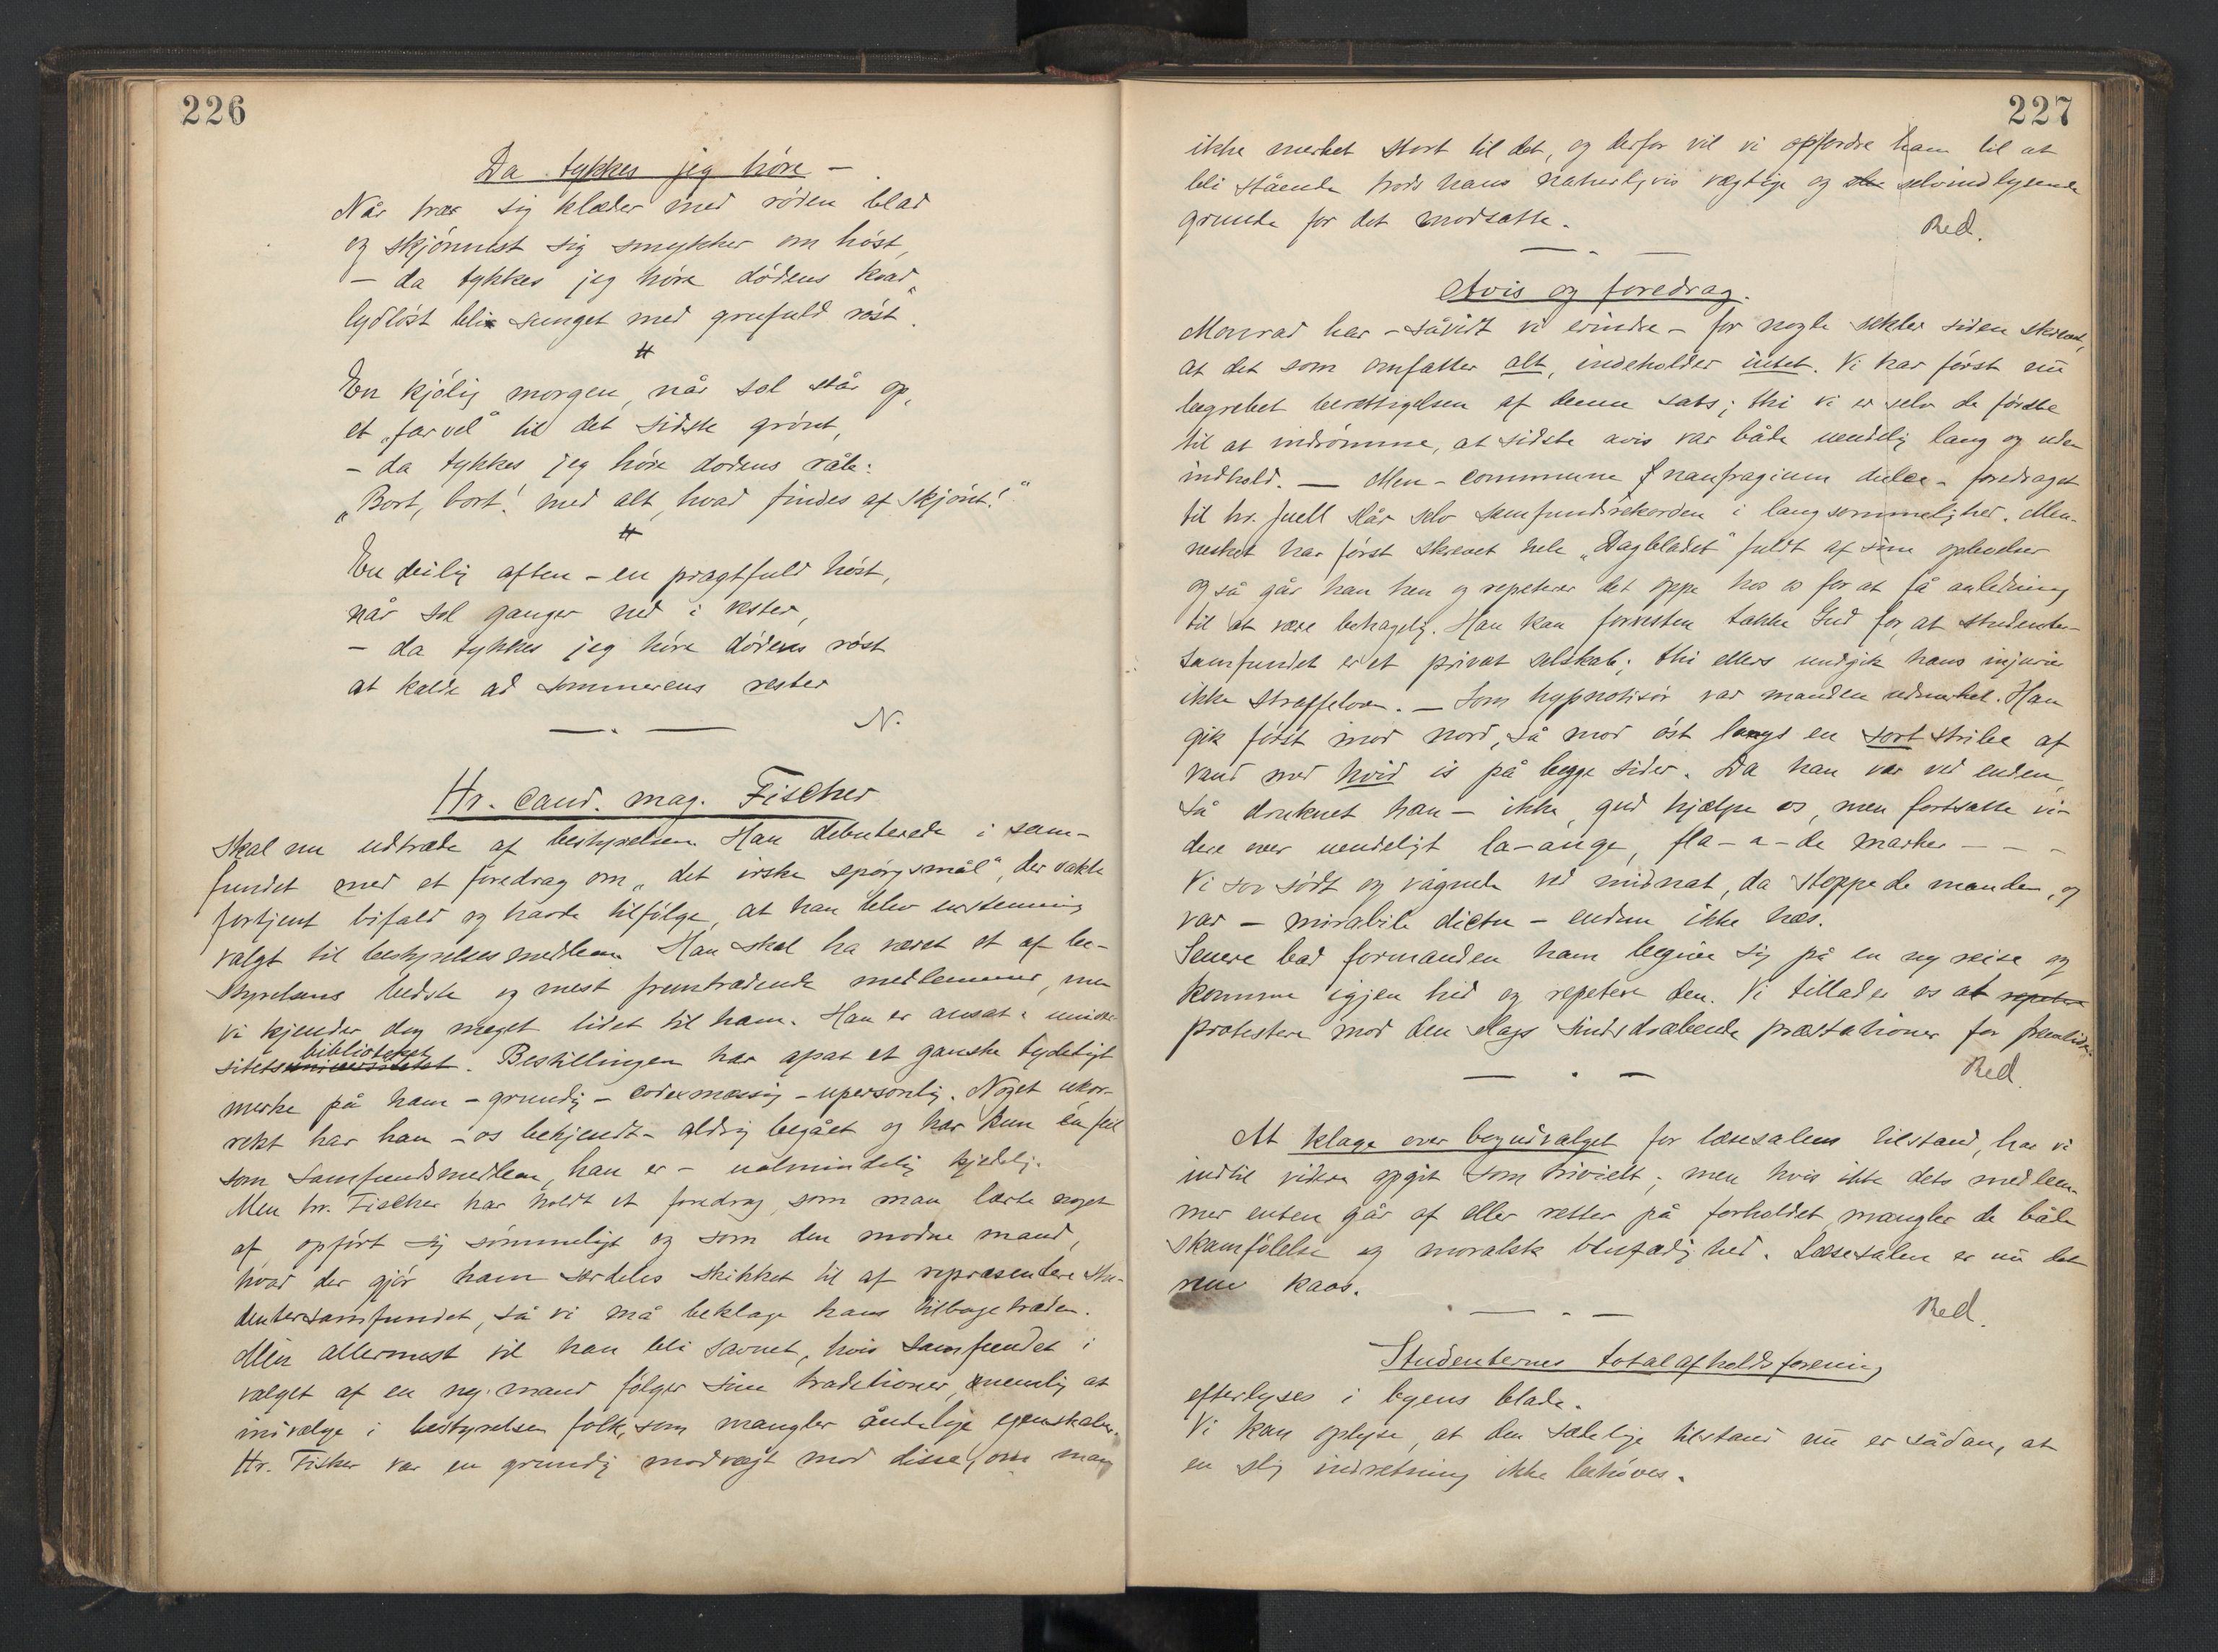 226
Da tykkes jeg høre –
Når trær sig klæder med røden blad
og skjønnest sig smykker om høst,
– da tykkes jeg høre dødens kvad
lydløst bli sunget med grufuld røst.
#
En kjølig morgen, når sol står op,
et „farvel“ til det sidste grønt,
– da tykkes jeg høre dødens råb:
„Bort, bort! med alt, hvad findes af skjønt!“
#
En deilig aften – en pragtfuld høst,
når sol ganger ned i vester,
– da tykkes jeg høre dødens røst
at kalde ad sommerens rester
N.
Hr. cand. mag. Fischer
skal nu udtræde af bestyrelsen. Han debuterede i sam-
fundet med et foredrag om „det irske spørgsmål“, der vakte
fortjent bifald og havde tilfølge, at han blev enstemmig
valgt til bestyrelsesmedlem. Han skal ha været et af be-
styrelsens bedste og mest fremtrædende medlemmer, men
vi kjender dog meget lidet til ham. Han er ansat i univer-
sitetsbiblioteket. Bestillingen har apat et ganske tydeligt
merke på ham – grundig – codexmæssig – upersonlig. Noget ukor-
rekt har han – os bekjendt – aldrig begået og har kun én feil
som samfundsmedlem, han er – ualmindelig kjedelig.
Men hr. Fischer har holdt et foredrag, som man lærte noget
af, opført sig sømmeligt og som den modne mand,
hvad der gjør ham særdeles skikket til at repræsentere stu-
dentersamfundet, så vi må beklage hans tilbagetræden.
Men allermest vil han bli savnet, hvis samfundet i
valget af en ny mand følger sine traditioner, nemlig at
indvælge i bestyrelsen folk, som mangler åndelige egenskaber.
Hr. Fisher var en grundig modvægt mod disse, om man
227
ikke merket stort til det, og derfor vil vi opfordre ham til at
bli stående trods hans naturligvis vægtige og selvindlysende
grunde for det modsatte.
Red.
Avis og foredrag.
Monrad har – såvidt vi erindre – for nogle sekler siden skrevet,
at det som omfatter alt, indeholder intet. Vi har først nu
begrebet berettigelsen af denne sats; thi vi er selv de første
til at indrømme, at sidste avis var både uendelig lang og uden
indhold. — Men – commune naufragium dulce – foredraget
til hr. Juell slår selv samfundsrekorden i langsommelighed. Men-
nesket har først skrevet hele „Dagbladet“ fuldt af sine oplevelser
og så går han hen og repeterer det oppe hos os for at få anledning
til at være behagelig. Han kan forresten takke Gud for, at studenter-
samfundet er et privat selskab; thi ellers undgik hans injurier
ikke straffeloven. — Som hypnotisør var manden udmerket. Han
gik først mod nord, så mod øst langs en sort stribe af
vand med hvid is på begge sider. Da han var ved enden,
så druknet han – ikke, gud hjælpe os, men fortsatte vi-
dere over uendeligt la-ange, fla-a-de marker – – –
Vi sov sødt og vågnede ved midnat, da stoppede manden, og
var – mirabile dictu – endnu ikke hæs.
Senere bad formanden ham begive sig på en ny reise og
komme igjen hid og repetere den. Vi tillader os at repetere
protestere mod den slags sindsdræbende præstationer for fremtiden.
Red.
At klage over bogudvalget for læsesalens tilstand, har vi
indtil videre opgit som trivielt; men hvis ikke dets medlem-
mer enten går af eller retter på forholdet, mangler de både
skamfølelse og moralsk blufærdighed. Læsesalen er nu det
rene kaos.
Red.
Studenternes totalafholdsforening
efterlyses i byens blade.
Vi kan oplyse, at den sædelige tilstand nu er sådan, at
en slig indretning ikke behøves.